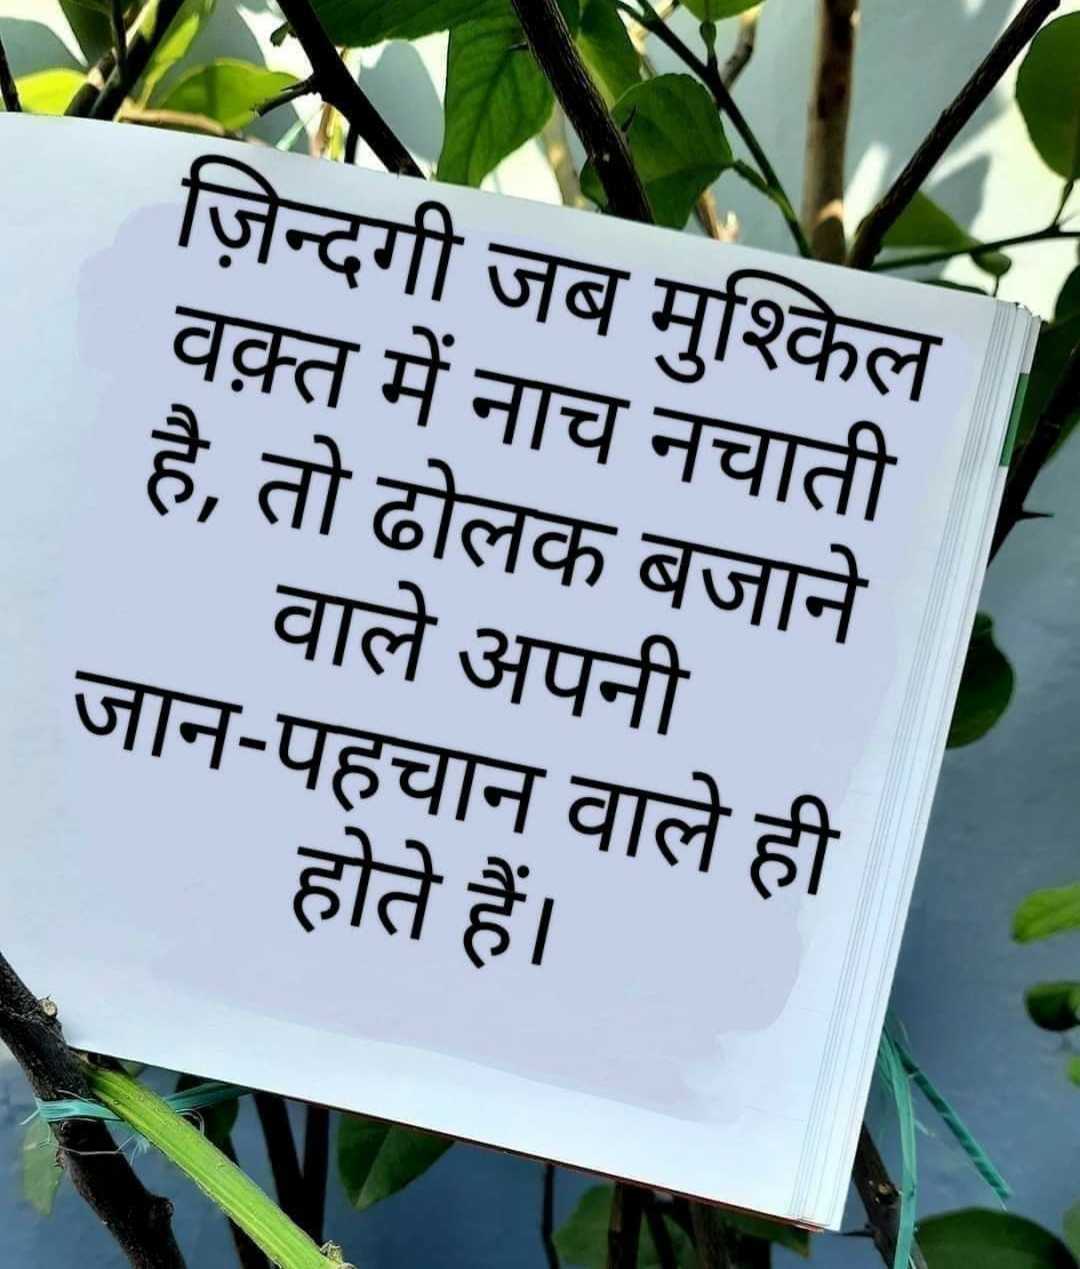 ज़िन्दगी जब मुश्किल
वक़्त में नाच नचाती
है, तो ढोलक बजाने
वाले अपनी
जान-पहचान वाले ही
होते हैं।